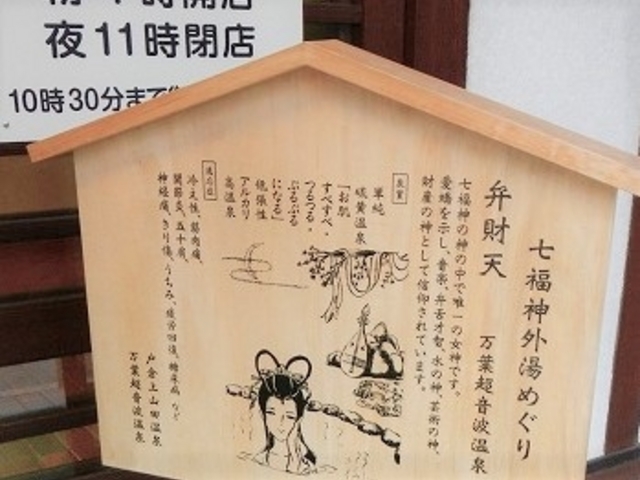 夜11時閉店
10時30分まで
七福神外湯めぐり
弁財天 万葉超音波温泉
七福神の神の中で唯一の女神です。
愛嬌を示し、音楽、弁舌才智、水の神、芸術の神、
財産の神として信仰されています。
泉質
単純
硫黄温泉
「お肌
すべすべ・
つるつる・
ぷるぷる
になる」
低張性
アルカリ
高温泉
適応症
冷え性、筋肉痛、
関節炎、五十肩、
神経痛、きり傷、うちみ、疲労回復、糖尿病 など
戸倉上山田温泉
万葉超音波温泉